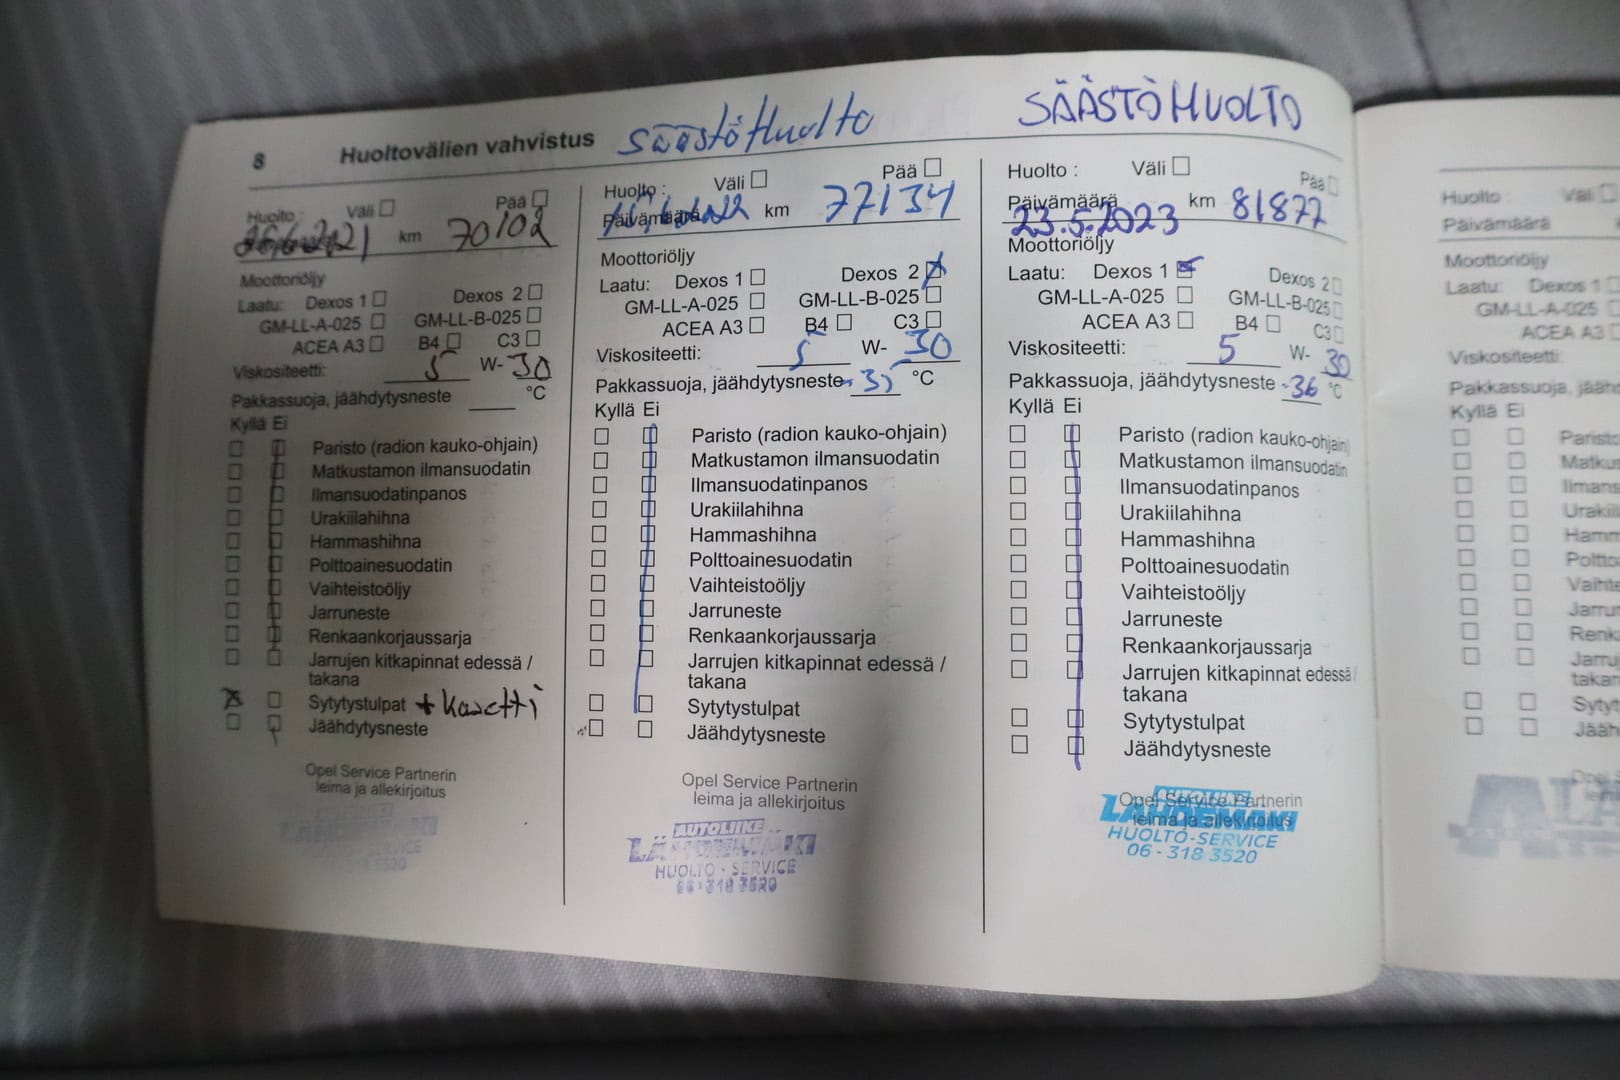 8 Huoltovälien vahvistus SäästöHuolto
SÄÄSTÖHUOLTO
Huolto: Väli Pää
km 70102
Moottoriöljy
Laatu: Dexos 1 Dexos 2
GM-LL-A-025 GM-LL-B-025
ACEA A3 B4 C3
Viskositeetti: 5 W- 30
Pakkassuoja, jäähdytysneste °C
Kyllä Ei
Paristo (radion kauko-ohjain)
Matkustamon ilmansuodatin
Ilmansuodatinpanos
Urakiilahihna
Hammashihna
Polttoainesuodatin
Vaihteistoöljy
Jarruneste
Renkaankorjaussarja
Jarrujen kitkapinnat edessä /
takana
Sytytystulpat + Kasetti
Jäähdytysneste
Opel Service Partnerin
leima ja allekirjoitus
Huolto: Väli Pää
Päivämäärä km 77134
Moottoriöljy
Laatu: Dexos 1 Dexos 2
GM-LL-A-025 GM-LL-B-025
ACEA A3 B4 C3
Viskositeetti: 5 W- 30
Pakkassuoja, jäähdytysneste -35 °C
Kyllä Ei
Paristo (radion kauko-ohjain)
Matkustamon ilmansuodatin
Ilmansuodatinpanos
Urakiilahihna
Hammashihna
Polttoainesuodatin
Vaihteistoöljy
Jarruneste
Renkaankorjaussarja
Jarrujen kitkapinnat edessä /
takana
Sytytystulpat
Jäähdytysneste
Opel Service Partnerin
leima ja allekirjoitus
AUTOLIIKE
HUOLTO - SERVICE
06 - 318 3520
Huolto : Väli Pää
Päivämäärä km 81877
23.5.2023
Moottoriöljy
Laatu: Dexos 1 Dexos 2
GM-LL-A-025 GM-LL-B-025
ACEA A3 B4 C3
Viskositeetti: 5 W- 30
Pakkassuoja, jäähdytysneste -36 °C
Kyllä Ei
Paristo (radion kauko-ohjain)
Matkustamon ilmansuodatin
Ilmansuodatinpanos
Urakiilahihna
Hammashihna
Polttoainesuodatin
Vaihteistoöljy
Jarruneste
Renkaankorjaussarja
Jarrujen kitkapinnat edessä /
takana
Sytytystulpat
Jäähdytysneste
Opel Service Partnerin
leima ja allekirjoitus
AUTOLIIKE
HUOLTO-SERVICE
06 - 318 3520
Huolto : Väli
Päivämäärä
Moottoriöljy
Laatu: Dexos 1
GM-LL-A-025
ACEA A3
Viskositeetti:
Pakkassuoja,
Kyllä Ei